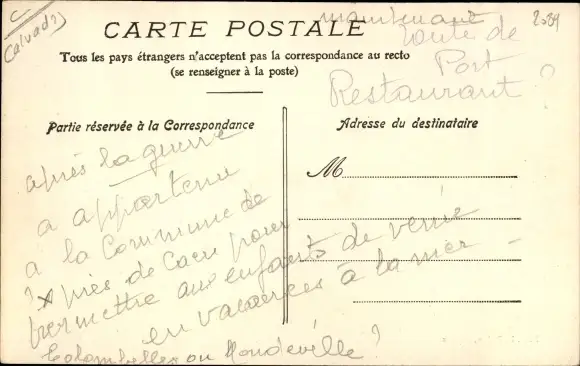 C
(Calvados)
2029
CARTE POSTALE
maintenant
route de
Port
Restaurant ?
Tous les pays étrangers n'acceptent pas la correspondance au recto
(se renseigner à la poste)
Partie réservée à la Correspondance
Adresse du destinataire
M
après la guerre
a appartenu
à la Commune de
? près de Caen pour
permettre aux enfants de venir
en vacances à la mer -
Colombelles ou Mondeville ?